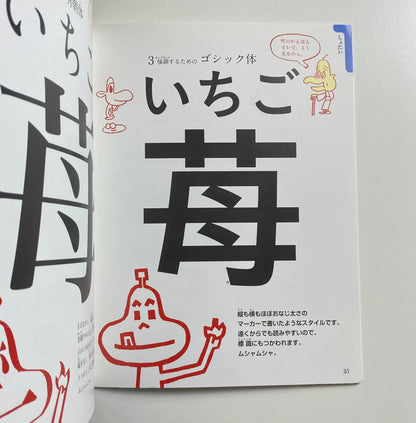 いちご
苺
しょたい
3 強調するための ゴシック体
町のかんばん
とかで、よく
見るのぅ。
いちご
苺
縦も横もほぼおなじ太さの
マーカーで書いたようなスタイルです。
遠くからでも読みやすいので、
標識にもつかわれます。
ムシャムシャ。
31